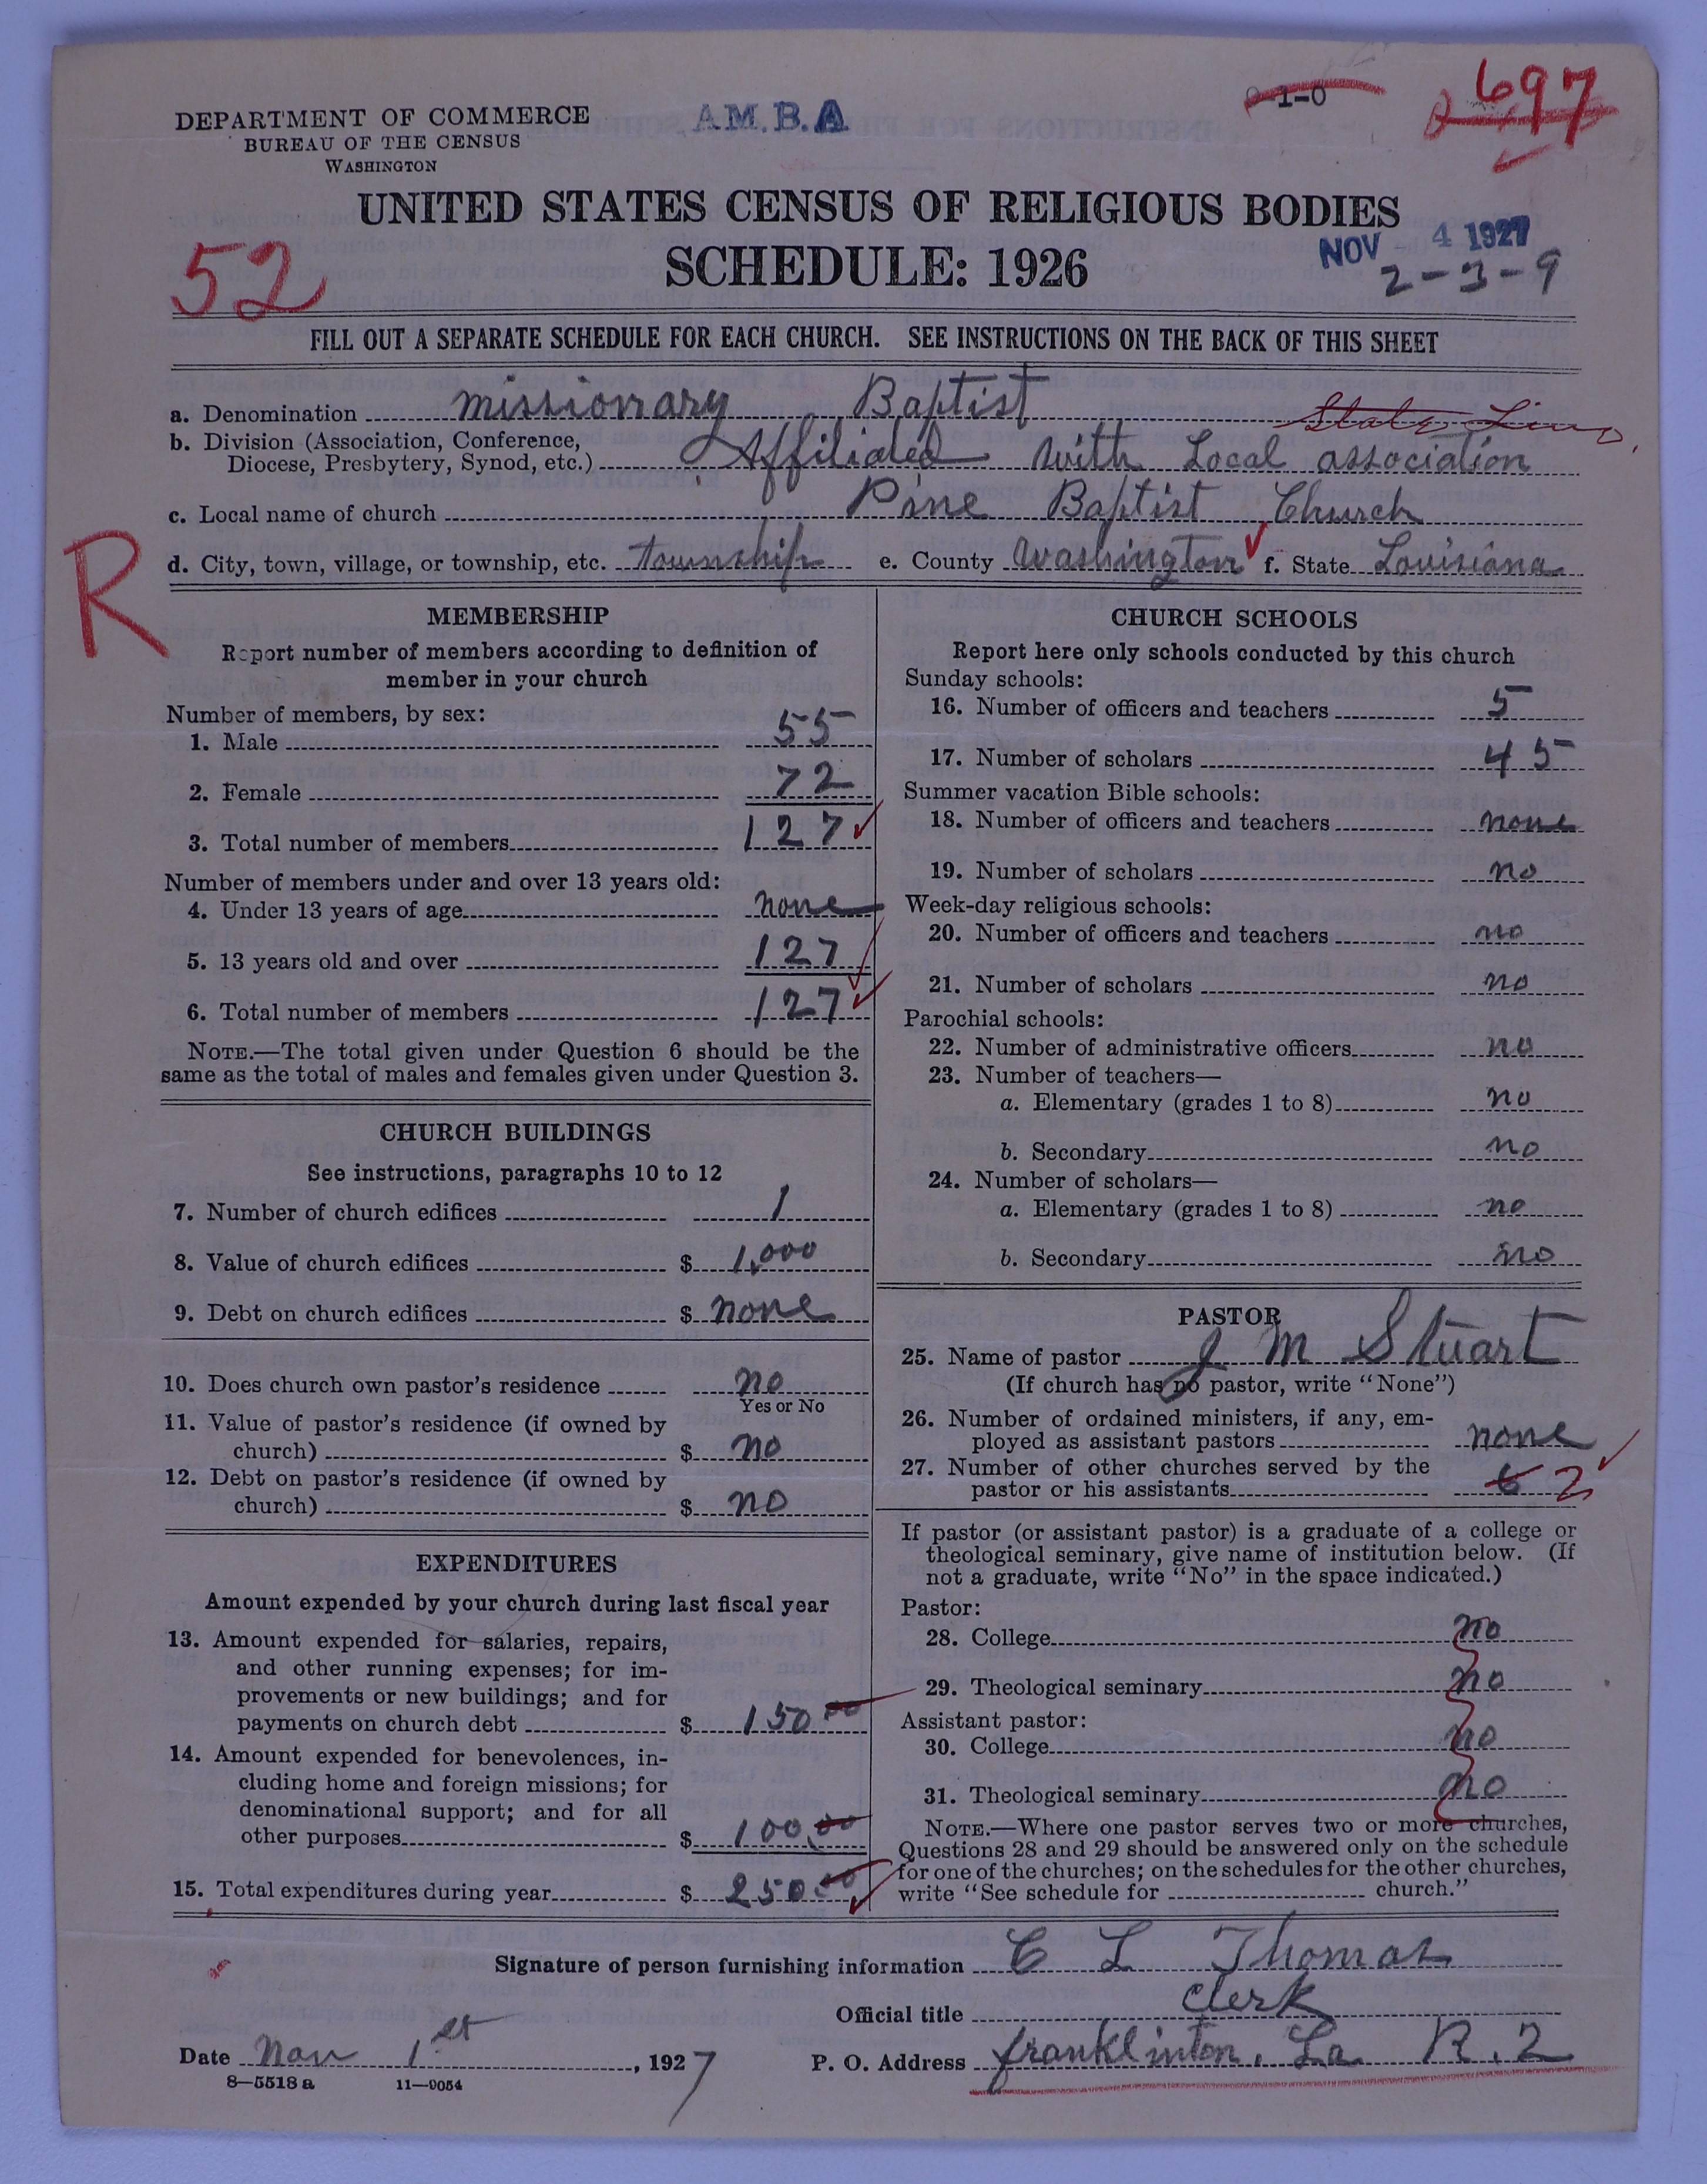 DEPARTMENT OF COMMERCE
BUREAU OF THE CENSUS
WASHINGTON
AM.B.A
697
UNITED STATES CENSUS OF RELIGIOUS BODIES
SCHEDULE: 1926
NOV 4 1927
2-3-9
52
FILL OUT A SEPARATE SCHEDULE FOR EACH CHURCH. SEE INSTRUCTIONS ON THE BACK OF THIS SHEET
a. Denomination missionary Baptist State Line
b. Division (Association, Conference,
Diocese, Presbytery, Synod, etc.) Affiliated with Local association
c. Local name of church Pine Baptist Church
R
d. City, town, village, or township, etc. township e. County Washington f. State Louisiana
MEMBERSHIP
Report number of members according to definition of
member in your church
Number of members, by sex:
1. Male 55
2. Female 72
3. Total number of members 127
Number of members under and over 13 years old:
4. Under 13 years of age none
5. 13 years old and over 127
6. Total number of members 127
NOTE.—The total given under Question 6 should be the
same as the total of males and females given under Question 3.
CHURCH BUILDINGS
See instructions, paragraphs 10 to 12
7. Number of church edifices 1
8. Value of church edifices $ 1,000
9. Debt on church edifices $ none
10. Does church own pastor's residence no
Yes or No
11. Value of pastor's residence (if owned by
church) $ no
12. Debt on pastor's residence (if owned by
church) $ no
EXPENDITURES
Amount expended by your church during last fiscal year
13. Amount expended for salaries, repairs,
and other running expenses; for im-
provements or new buildings; and for
payments on church debt $ 150 00
14. Amount expended for benevolences, in-
cluding home and foreign missions; for
denominational support; and for all
other purposes $ 100.00
15. Total expenditures during year $ 250.00
CHURCH SCHOOLS
Report here only schools conducted by this church
Sunday schools:
16. Number of officers and teachers 5
17. Number of scholars 45
Summer vacation Bible schools:
18. Number of officers and teachers none
19. Number of scholars no
Week-day religious schools:
20. Number of officers and teachers no
21. Number of scholars no
Parochial schools:
22. Number of administrative officers no
23. Number of teachers—
a. Elementary (grades 1 to 8) no
b. Secondary no
24. Number of scholars—
a. Elementary (grades 1 to 8) no
b. Secondary no
PASTOR
25. Name of pastor J M Stuart
(If church has no pastor, write "None")
26. Number of ordained ministers, if any, em-
ployed as assistant pastors none
27. Number of other churches served by the
pastor or his assistants 2
If pastor (or assistant pastor) is a graduate of a college or
theological seminary, give name of institution below. (If
not a graduate, write "No" in the space indicated.)
Pastor:
28. College no
29. Theological seminary no
Assistant pastor:
30. College no
31. Theological seminary no
NOTE.—Where one pastor serves two or more churches,
Questions 28 and 29 should be answered only on the schedule
for one of the churches; on the schedules for the other churches,
write "See schedule for church."
Signature of person furnishing information C L Thomas
Official title Clerk
Date Nov 1st, 1927 P. O. Address franklinton, La R.2
8—5518 a 11—9054